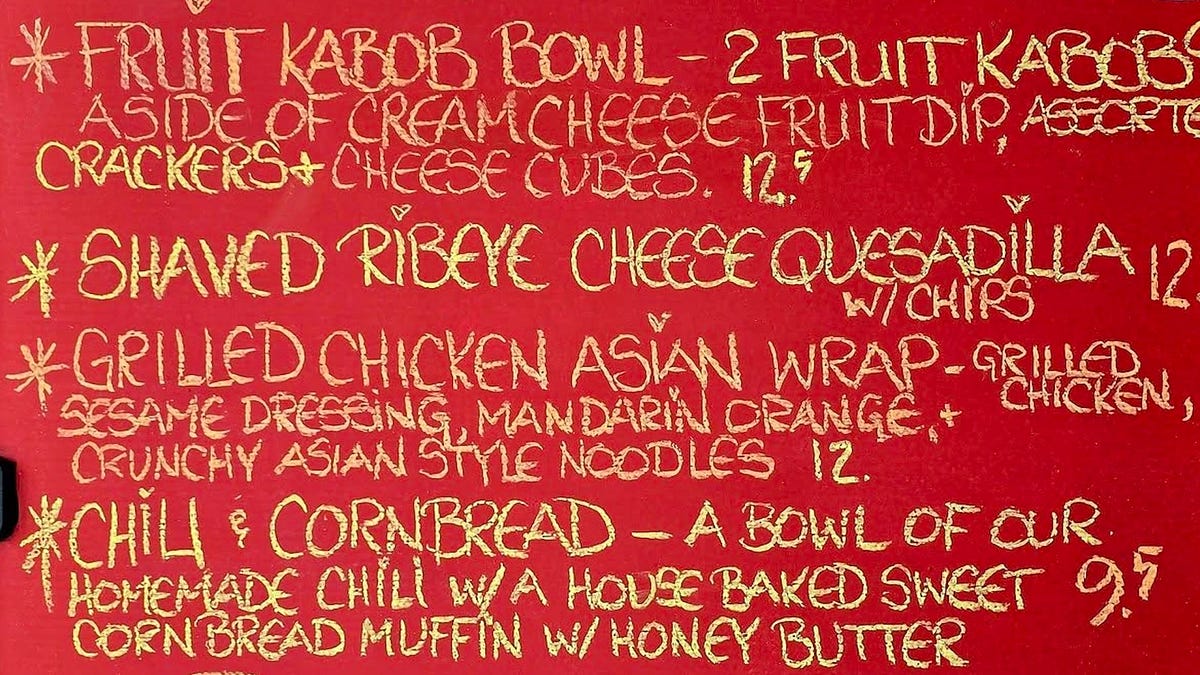 * FRUIT KABOB BOWL - 2 FRUIT KABOBS
A SIDE OF CREAM CHEESE FRUIT DIP, ASSORTE
CRACKERS + CHEESE CUBES. 12.5
* SHAVED RIBEYE CHEESE QUESADILLA 12
W/ CHIPS
* GRILLED CHICKEN ASIAN WRAP - GRILLED
CHICKEN,
SESAME DRESSING, MANDARIN ORANGE, +
CRUNCHY ASIAN STYLE NOODLES 12.
* CHILI & CORNBREAD - A BOWL OF OUR
HOMEMADE CHILI W/ A HOUSE BAKED SWEET 9.5
CORNBREAD MUFFIN W/ HONEY BUTTER